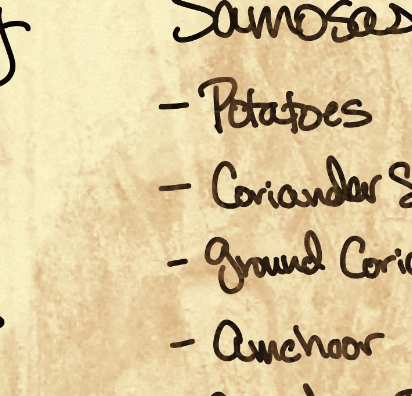 Samosas
- Potatoes
- Coriander S
- ground Cori
- Amchoor